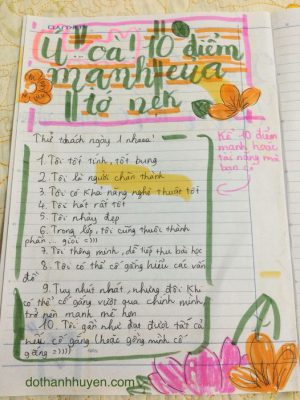 Ú .. oà! 10 điểm
mạnh của
tớ nek
Thử thách ngày 1 nhaaa!
Kể 10 điểm
mạnh hoặc
tài năng mà
bạn có
1. Tôi tốt tính, tốt bụng
2. Tôi là người chân thành
3. Tôi có khả năng nghệ thuật tốt
4. Tôi hát rất tốt
5. Tôi nhảy đẹp
6. Trong lớp, tôi cũng thuộc thành
phần ... giỏi =)))
7. Tôi thông minh, dễ tiếp thu bài học
8. Tôi có thể cố gắng hiểu các vấn
đề
9. Tuy nhút nhát, nhưng đôi khi
có thể cố gắng vượt qua chính mình
trở nên mạnh mẽ hơn
10. Tôi gần như đạt được tất cả
nếu cố gắng (hoặc gồng mình cố
gắng =))))
dothanhhuyen.com